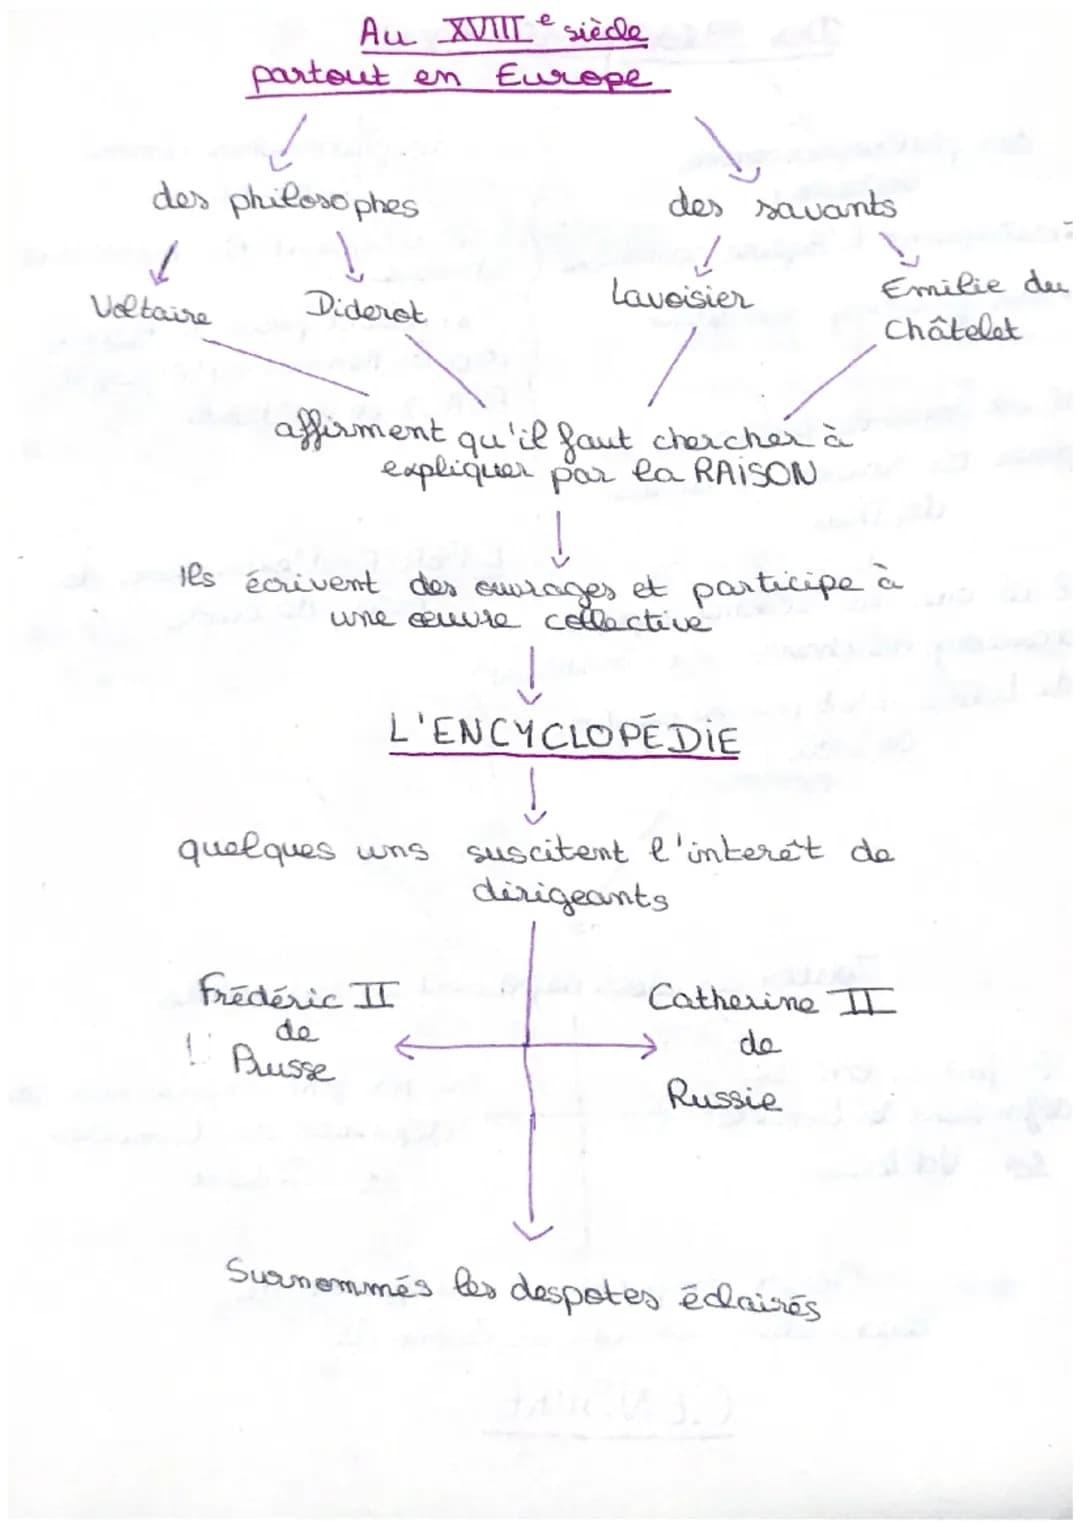 Au XVIIIe siècle
partout en Europe
des philosophes
des savants
Voltaire
Diderot
Lavoisier
Emilie du
Châtelet
affirment qu'il faut chercher à
expliquer par la RAISON
Ils écrivent des ouvrages et participe à
une œuvre collective
L'ENCYCLOPÉDIE
quelques uns suscitent l'interêt de
dirigeants
Frédéric II
de
Prusse
Catherine II
de
Russie
Surnommés les despotes éclairés